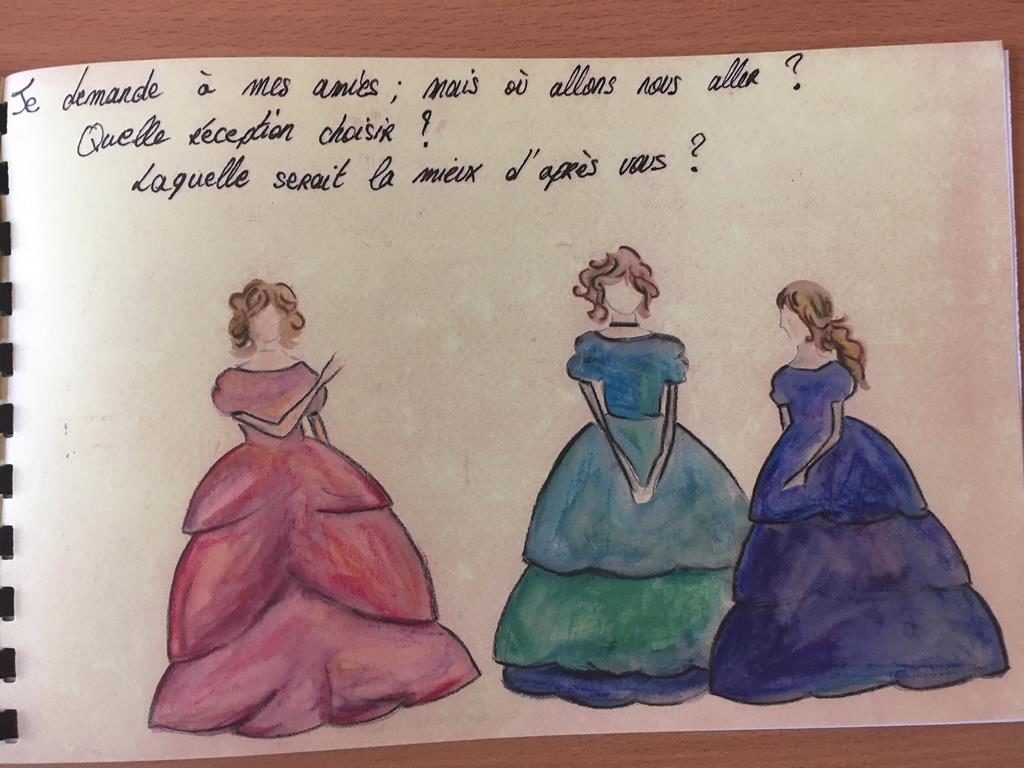 Je demande à mes amies ; mais où allons nous aller ?
Quelle réception choisir ?
Laquelle serait la mieux d'après vous ?